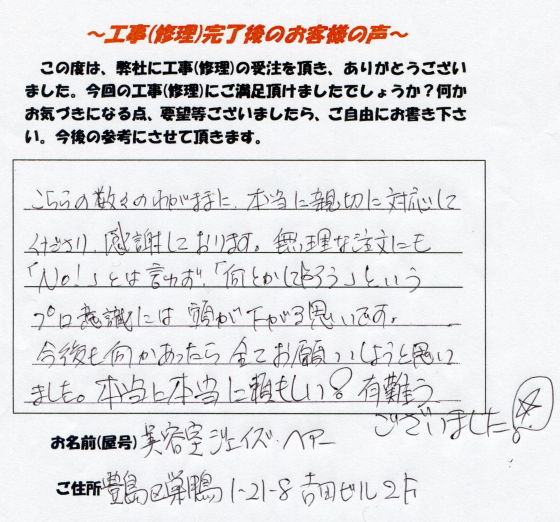 ～工事(修理)完了後のお客様の声～
この度は、弊社に工事(修理)の受注を頂き、ありがとうござい
ました。今回の工事(修理)にご満足頂けましたでしょうか？何か
お気づきになる点、要望等ございましたら、ご自由にお書き下さ
い。今後の参考にさせて頂きます。
こちらの数々のわがままに、本当に親切に対応して
くださり、感謝しております。無理な注文にも
「No!」とは言わず、「何とかしてやろう」という
プロ意識には頭が下がる思いです。
今後も何かあったら全てお願いしようと思い
ました。本当に本当に頼もしい！有難う
ございました！
お名前(屋号) 美容室ジェイズ・ヘアー
ご住所 豊島区巣鴨1-21-8 吉田ビル2F